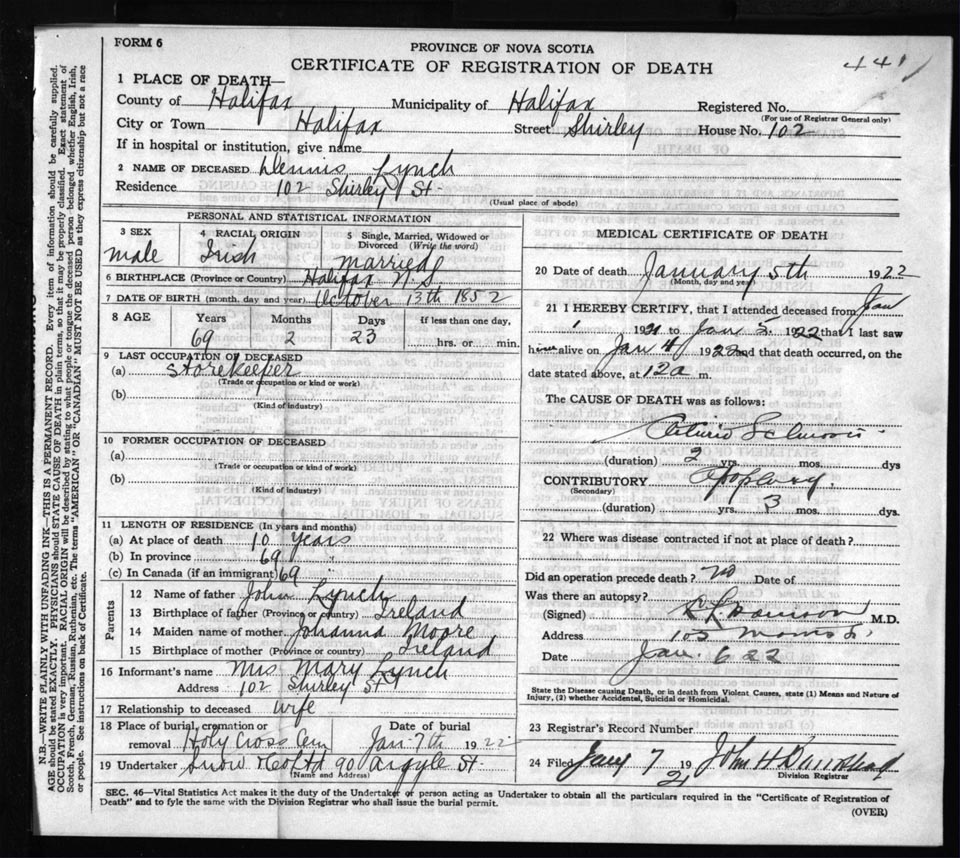 FORM 6
PROVINCE OF NOVA SCOTIA
CERTIFICATE OF REGISTRATION OF DEATH
441
1 PLACE OF DEATH—
County of Halifax Municipality of Halifax Registered No.
(For use of Registrar General only)
City or Town Halifax Street Shirley House No. 102
If in hospital or institution, give name
2 NAME OF DECEASED Dennis Lynch
Residence 102 Shirley St.
(Usual place of abode)
PERSONAL AND STATISTICAL INFORMATION
3 SEX 4 RACIAL ORIGIN 5 Single, Married, Widowed or
Divorced (Write the word)
Male Irish Married
6 BIRTHPLACE (Province or Country) Halifax N.S.
7 DATE OF BIRTH (month, day and year) October 13th 1852
8 AGE Years Months Days If less than one day,
69 2 23 hrs. or min.
9 LAST OCCUPATION OF DECEASED
(a) Storekeeper
(Trade or occupation or kind or work)
(b)
(Kind of industry)
10 FORMER OCCUPATION OF DECEASED
(a)
(Trade or occupation or kind of work)
(b)
(Kind of industry)
11 LENGTH OF RESIDENCE (In years and months)
(a) At place of death 10 years
(b) In province 69
(c) In Canada (if an immigrant) 69
Parents
12 Name of father John Lynch
13 Birthplace of father (Province or country) Ireland
14 Maiden name of mother Johanna Moore
15 Birthplace of mother (Province or country) Ireland
16 Informant's name Mrs Mary Lynch
Address 102 Shirley St
17 Relationship to deceased Wife
18 Place of burial, cremation or Date of burial
removal Holy Cross Cem Jan 7th 1922
19 Undertaker Snow & Co Ltd 90 Argyle St.
(Name and Address)
MEDICAL CERTIFICATE OF DEATH
20 Date of death January 5th 1922
(Month, day and year)
21 I HEREBY CERTIFY, that I attended deceased from Jan
1 1921 to Jan 5 1922 that I last saw
him alive on Jan 4 1922 and that death occurred, on the
date stated above, at 12 a m.
The CAUSE OF DEATH was as follows:
(duration) 2 yrs. mos. dys
CONTRIBUTORY Apoplexy.
(Secondary)
(duration) yrs. 3 mos. dys.
22 Where was disease contracted if not at place of death?
Did an operation precede death? no Date of
Was there an autopsy?
(Signed) M.D.
Address 103 Morris St.
Date Jan. 6 22
State the Disease causing Death, or in death from Violent Causes, state (1) Means and Nature of
Injury, (2) whether Accidental, Suicidal or Homicidal.
23 Registrar's Record Number
24 Filed Jany 7 192 John H
Division Registrar
SEC. 46—Vital Statistics Act makes it the duty of the Undertaker or person acting as Undertaker to obtain all the particulars required in the "Certificate of Registration of
Death" and to fyle the same with the Division Registrar who shall issue the burial permit.
(OVER)
N.B.—WRITE PLAINLY WITH UNFADING INK—THIS IS A PERMANENT RECORD. Every item of information should be carefully supplied.
AGE should be stated EXACTLY. PHYSICIANS should STATE CAUSE OF DEATH in plain terms, so that it may be properly classified. Exact statement of
OCCUPATION is very important. RACIAL ORIGIN will be described by stating to what people or tongue the deceased person belonged whether English, Irish,
Scotch, French, German, Russian, Ruthenian, etc. The terms "AMERICAN" OR "CANADIAN" MUST NOT BE USED as they express citizenship but not a race
or people. See instructions on back of Certificate.